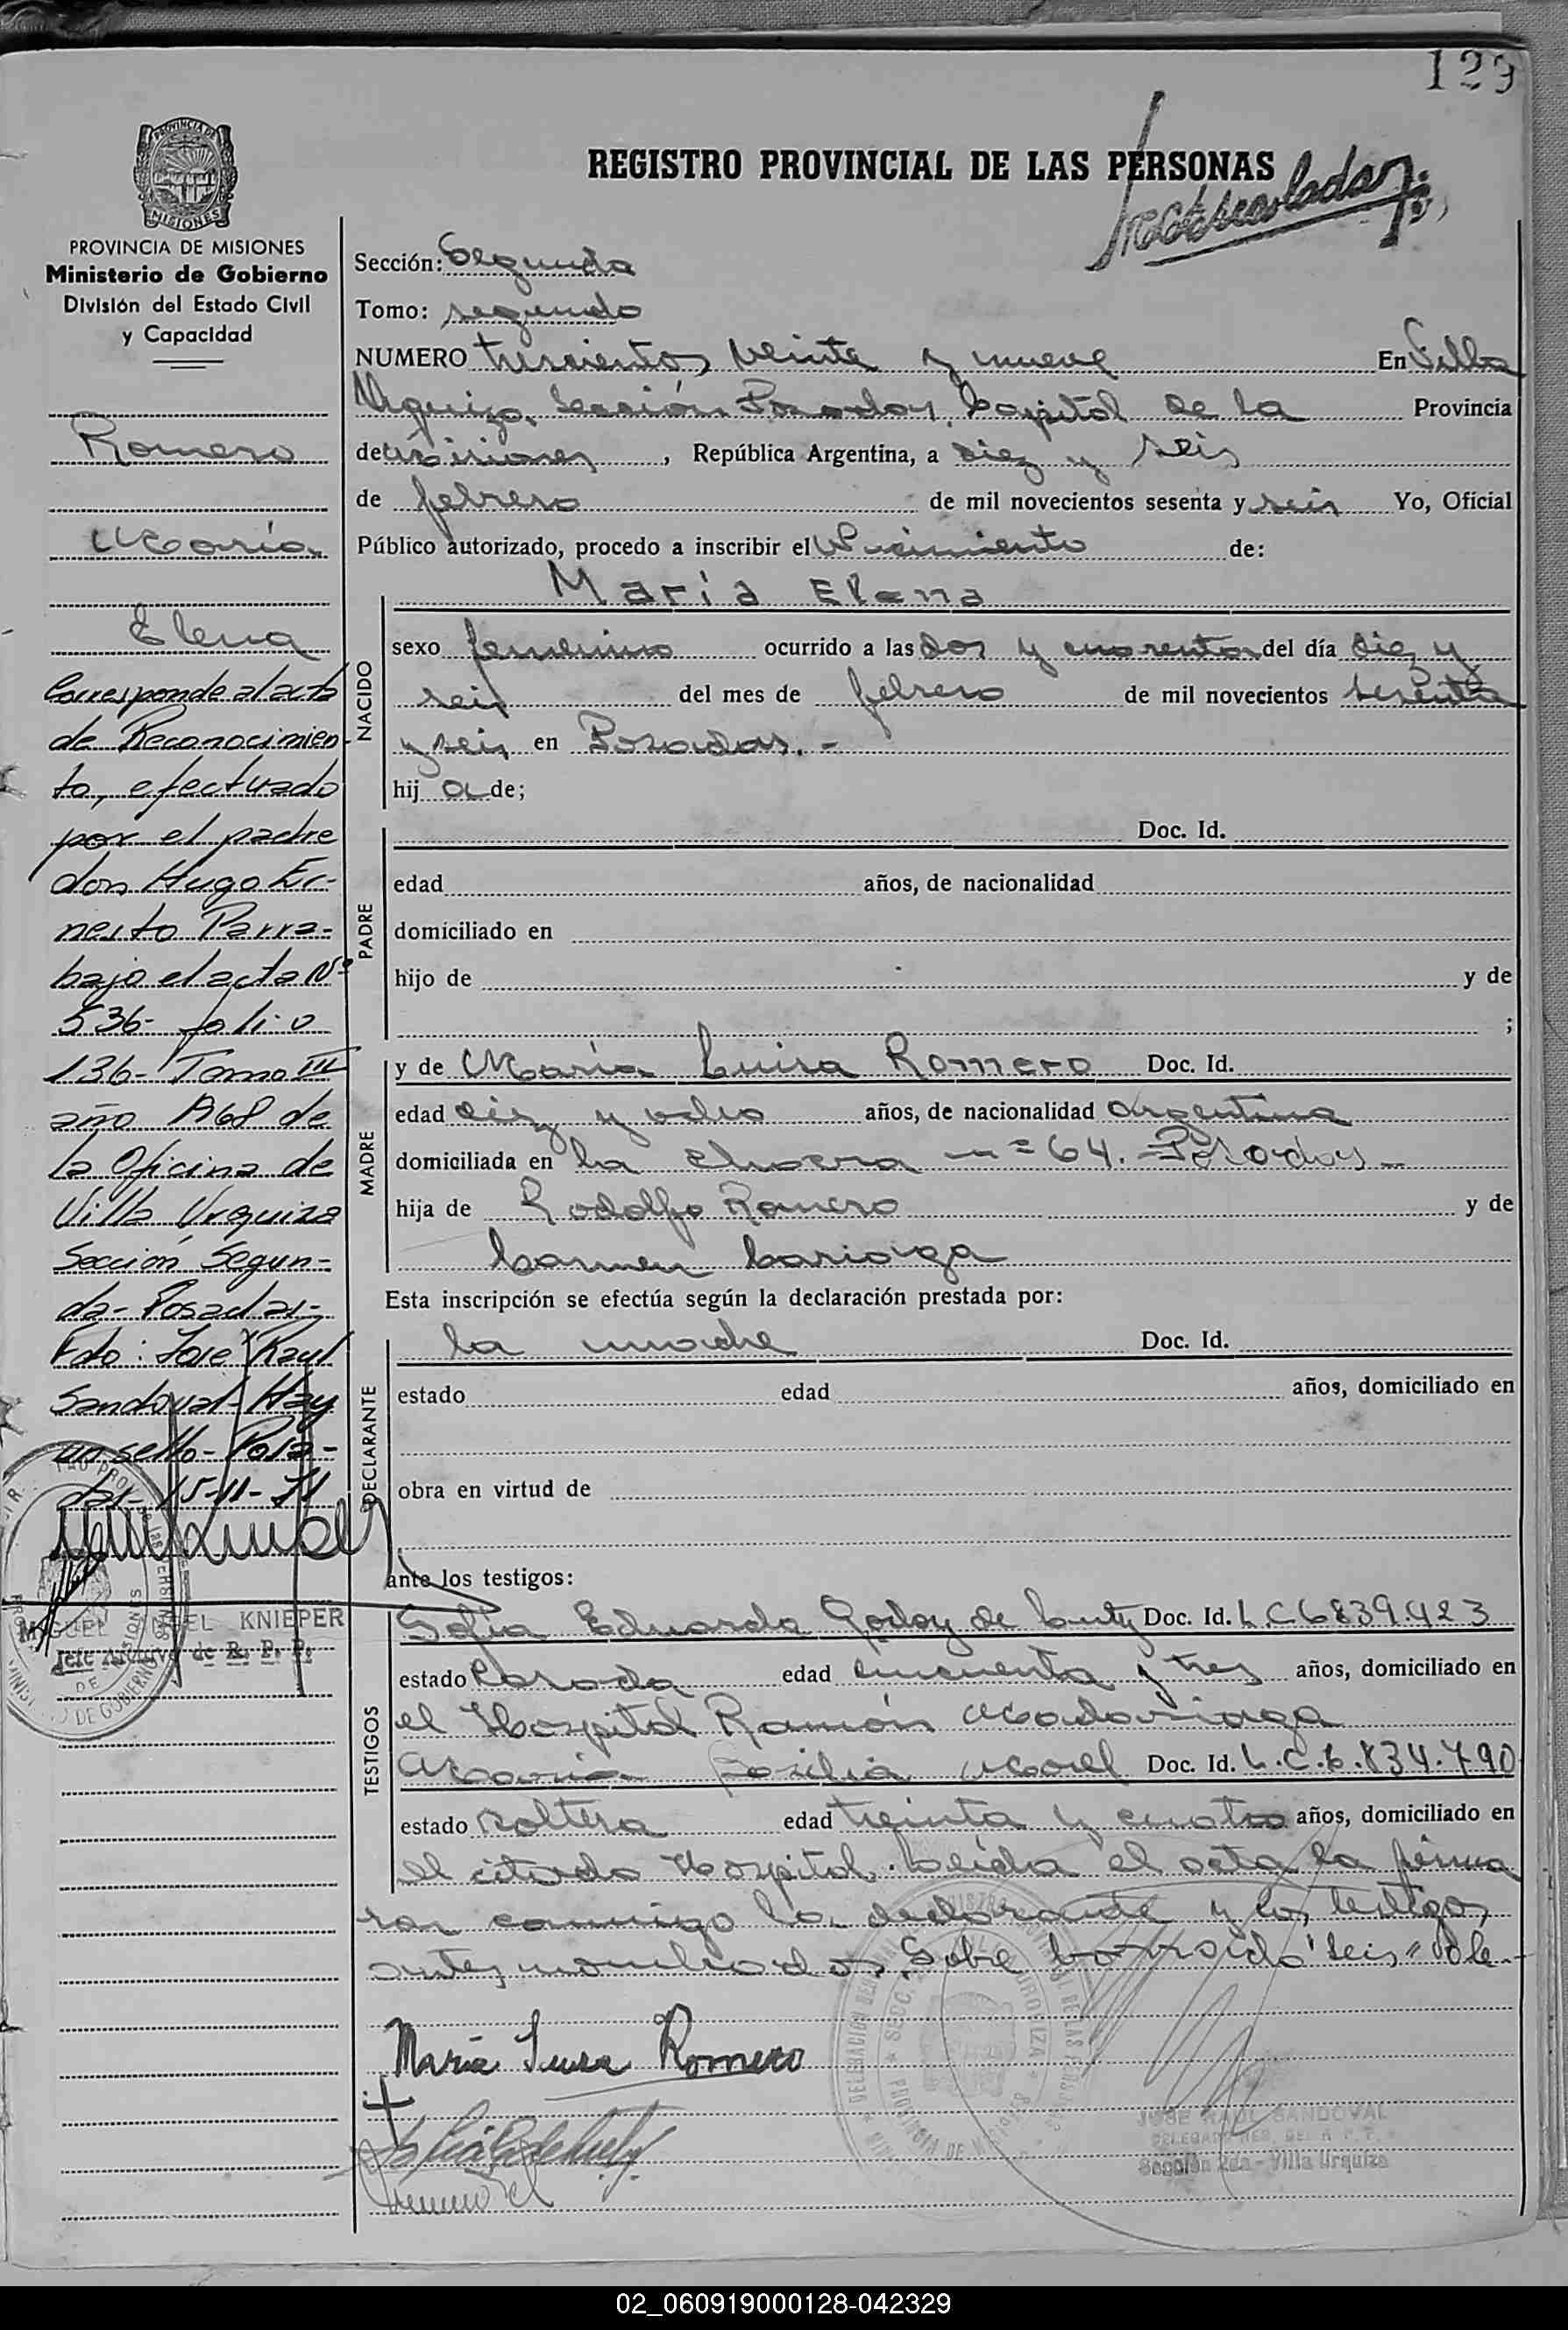 129
REGISTRO PROVINCIAL DE LAS PERSONAS
PROVINCIA DE MISIONES
MISIONES
PROVINCIA DE MISIONES
Ministerio de Gobierno
División del Estado Civil
y Capacidad
Romero
María
Elena
Corresponde al acta
de Reconocimien-
to, efectuado
por el padre
don Hugo Er-
nesto Parra-
bajo el acta Nº
536- folio
136- Tomo III
año 1968 de
la Oficina de
Villa Urquiza
Sección Segun-
da- Posadas-
Fdo: José Raul
Sandoval- Hay
un sello- Posa-
das- 15-11-71
MIGUEL ANGEL KNIEPER
Jefe Archivo de R. P. P.
Sección: Segunda
Tomo: segundo
NUMERO trescientos veinte y nueve En Villa
Urquiza, Sección Posadas, Capital de la Provincia
de Misiones, República Argentina, a diez y seis
de febrero de mil novecientos sesenta y seis Yo, Oficial
Público autorizado, procedo a inscribir el Nacimiento de:
NACIDO
María Elena
sexo femenino ocurrido a las dos y cuarenta del día diez y
seis del mes de febrero de mil novecientos sesenta
y seis en Posadas.-
hij a de;
PADRE
Doc. Id.
edad años, de nacionalidad
domiciliado en
hijo de y de
;
MADRE
y de María Luisa Romero Doc. Id.
edad diez y ocho años, de nacionalidad argentina
domiciliada en La Chacra nº 64.- Posadas-
hija de Rodolfo Romero y de
Carmen Cariaga
Esta inscripción se efectúa según la declaración prestada por:
DECLARANTE
la madre Doc. Id.
estado edad años, domiciliado en
obra en virtud de
ante los testigos:
TESTIGOS
Sofia Eduarda Godoy de Doc. Id. L.C 6839.423
estado Casada edad cincuenta y tres años, domiciliado en
el Hospital Ramón Madariaga
María Morel Doc. Id. L.C.6.834.790
estado soltera edad treinta y cuatro años, domiciliado en
el citado Hospital. Leída el acta la firma
ron conmigo la declarante y los testigos
antes nombrados. Sobre borrado "seis" vale-
María Luisa Romero
JOSE RAUL SANDOVAL
DELEGADO REG. DE R. P. P.
Sección 2da - Villa Urquiza
02_060919000128-042329